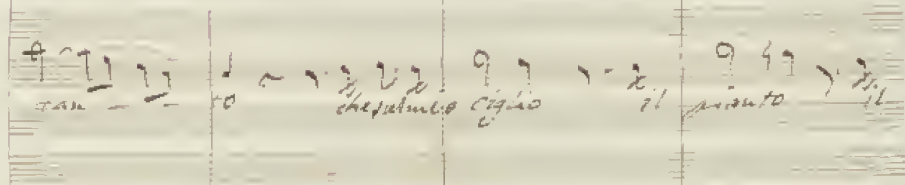 tan _ _ to che, almeno Ciglio il pianto il